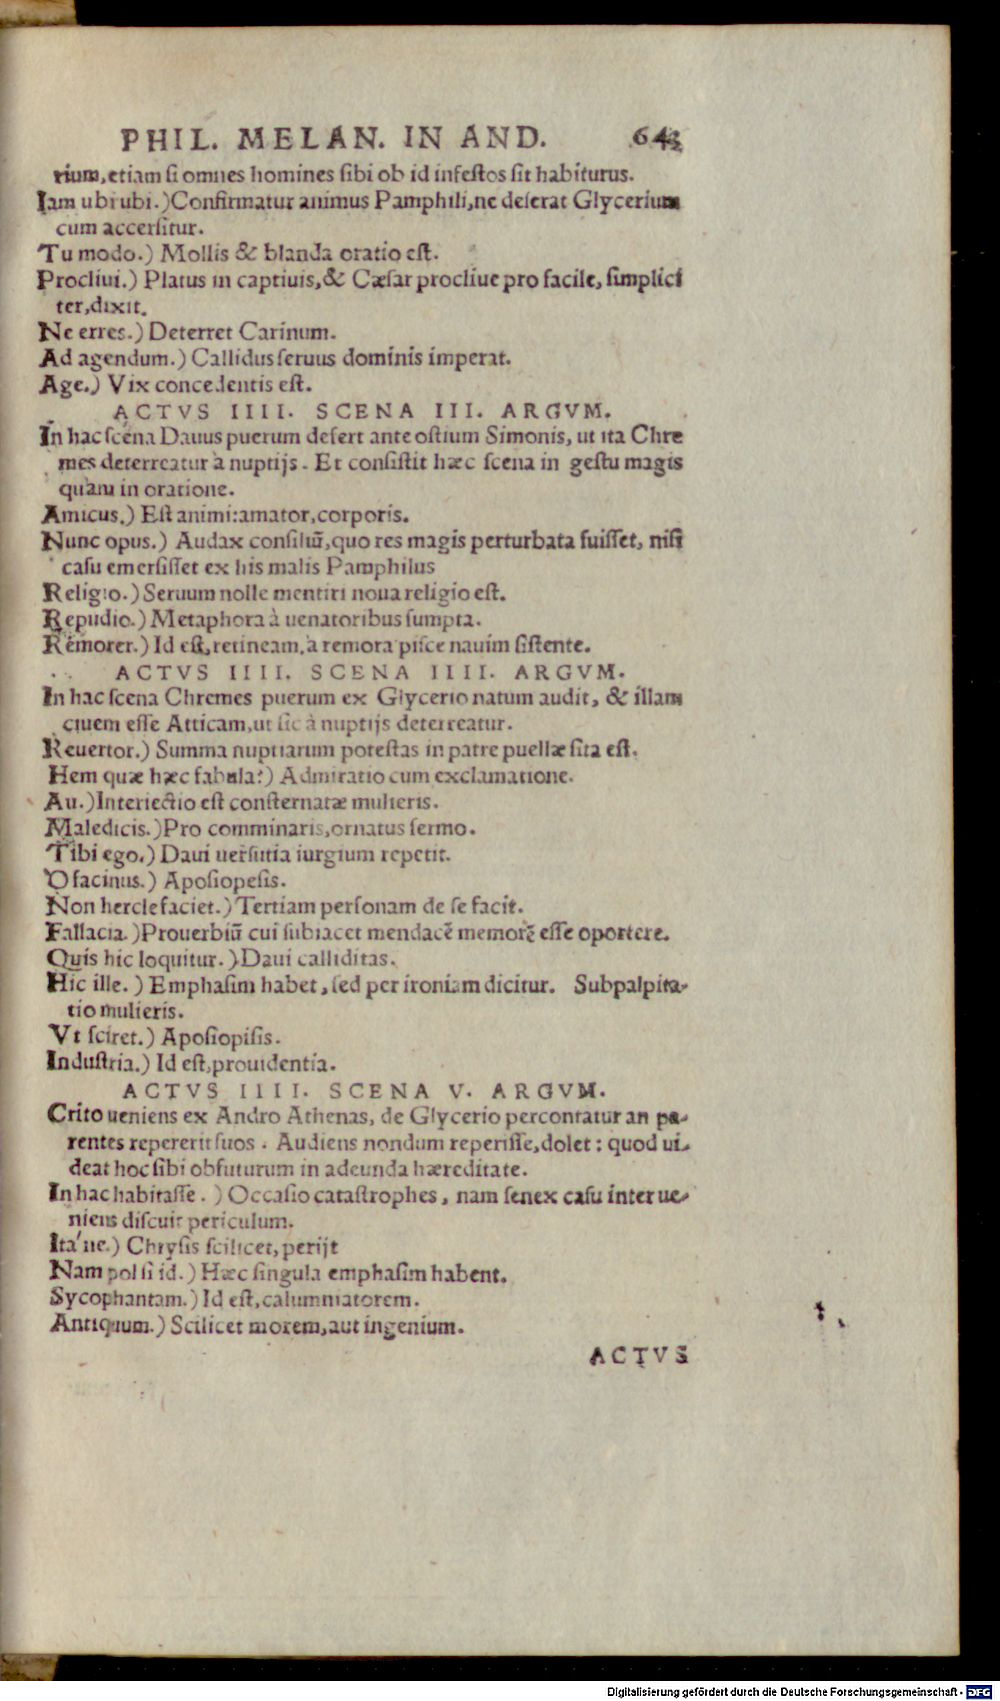 PHIL. MELAN. IN AND. 643
rium, etiam si omnes homines sibi ob id infestos sit habiturus.
Iam ubi ubi.) Confirmatur animus Pamphili, ne deserat Glycerium
cum accersitur.
Tu modo.) Mollis & blanda oratio est.
Procliui.) Platus in captiuis, & Cæsar procliue pro facile, simplici
ter, dixit.
Ne erres.) Deterret Carinum.
Ad agendum.) Callidus seruus dominis imperat.
Age.) Vix concedentis est.
ACTVS IIII. SCENA III. ARGVM.
In hac scena Dauus puerum defert ante ostium Simonis, ut ita Chre
mes deterreatur à nuptijs. Et consistit hæc scena in gestu magis
quàm in oratione.
Amicus.) Est animi: amator, corporis.
Nunc opus.) Audax consiliũ, quo res magis perturbata fuisset, nisi
casu emersisset ex his malis Pamphilus
Religio.) Seruum nolle mentiri noua religio est.
Repudio.) Metaphora à uenatoribus sumpta.
Remorer.) Id est, retineam, à remora pisce nauim sistente.
ACTVS IIII. SCENA IIII. ARGVM.
In hac scena Chremes puerum ex Glycerio natum audit, & illam
ciuem esse Atticam, ut sic à nuptijs deterreatur.
Reuertor.) Summa nuptiarum potestas in patre puellæ sita est.
Hem quæ hæc fabula?) Admiratio cum exclamatione.
Au.) Interiectio est consternatæ mulieris.
Maledicis.) Pro comminaris, ornatus sermo.
Tibi ego.) Daui uersutia iurgium repetit.
O facinus.) Aposiopesis.
Non hercle faciet.) Tertiam personam de se facit.
Fallacia.) Prouerbiũ cui subiacet mendacẽ memorẽ esse oportere.
Quis hic loquitur.) Daui calliditas.
Hic ille.) Emphasim habet, sed per ironiam dicitur. Subpalpita-
tio mulieris.
Vt sciret.) Aposiopisis.
Industria.) Id est, prouidentia.
ACTVS IIII. SCENA V. ARGVM.
Crito ueniens ex Andro Athenas, de Glycerio percontatur an pa-
rentes repererit suos. Audiens nondum reperisse, dolet: quod ui-
deat hoc sibi obfuturum in adeunda hæreditate.
In hac habitasse.) Occasio catastrophes, nam senex casu interue-
niens discutit periculum.
Ita'ne.) Chrysis scilicet, perijt
Nam pol si id.) Hæc singula emphasim habent.
Sycophantam.) Id est, calumniatorem.
Antiquum.) Scilicet morem, aut ingenium.
ACTVS
Digitalisierung gefördert durch die Deutsche Forschungsgemeinschaft - DFG